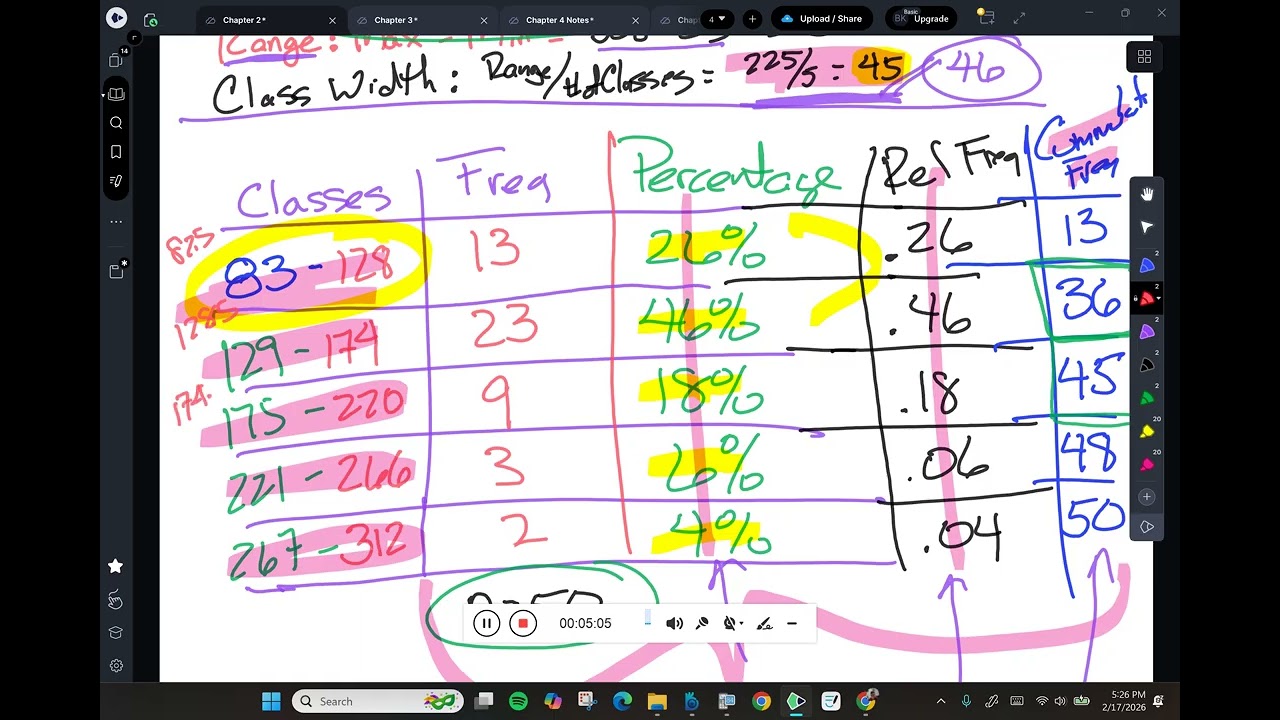 Chapter 2*
Chapter 3*
Chapter 4 Notes*
Chap
4
Upload / Share
BK
Basic
Upgrade
14
Range:
Class Width: Range/#of Classes = 225/5 = 45 46
Classes Freq Percentage Rel Freq Freq
82.5
83 - 128 13 26% .26 13
128.5
129 - 174 23 46% .46 36
174.
175 - 220 9 18% .18 45
221 - 266 3 6% .06 48
267 - 312 2 4% .04 50
n = 50
00:05:05
2
2
2
2
2
20
20
Search
5:26 PM
2/17/2026